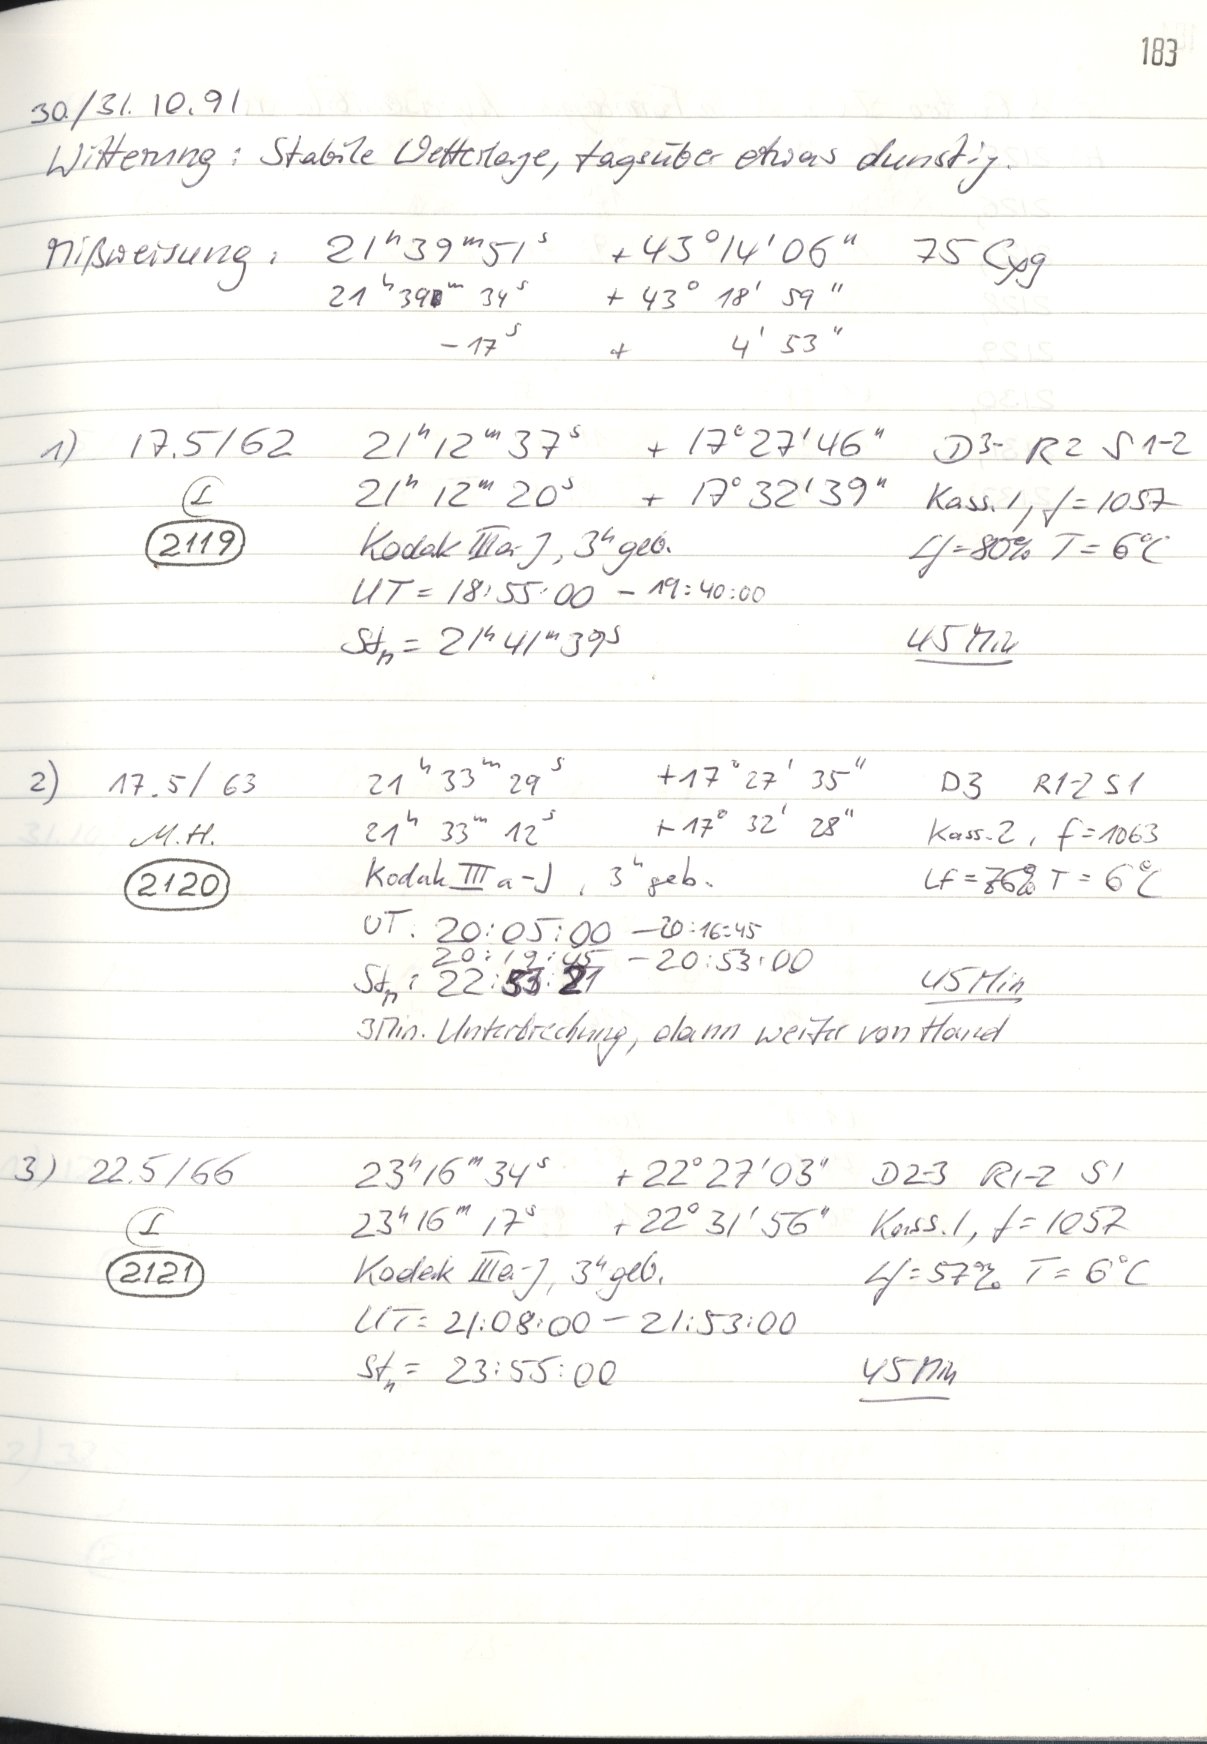 183
30./31.10.91
Witterung: Stabile Wetterlage, tagsüber etwas dunstig.
Mißweisung: 21ʰ39ᵐ51ˢ +43°14'06" 75 Cyg
21ʰ39ᵐ 34ˢ + 43° 18' 59"
-17ˢ + 4' 53"
1) 17.5/62 21ʰ12ᵐ37ˢ + 17°27'46" D3- R2 S1-2
I 21ʰ12ᵐ20ˢ + 17°32'39" Kass.1, f=1057
2119 Kodak IIIa-J, 3ʰ geb. Lf=80% T=6°C
UT=18:55:00 - 19:40:00
Stₙ=21ʰ41ᵐ39ˢ 45 Min
2) 17.5/63 21ʰ33ᵐ29ˢ +17°27'35" D3 R1-2 S1
M.H. 21ʰ33ᵐ12ˢ +17°32'28" Kass.2, f=1063
2120 Kodak IIIa-J, 3ʰ geb. Lf=76% T=6°C
UT: 20:05:00 - 20:16:45
20:19:45 - 20:53:00
Stₙ: 22: 45 Min
3 Min. Unterbrechung, dann weiter von Hand
3) 22.5/66 23ʰ16ᵐ34ˢ +22°27'03" D2-3 R1-2 S1
I 23ʰ16ᵐ17ˢ +22°31'56" Kass.1, f=1057
2121 Kodak IIIa-J, 3ʰ geb. Lf=57% T=6°C
UT=21:08:00 - 21:53:00
Stₙ=23:55:00 45 Min